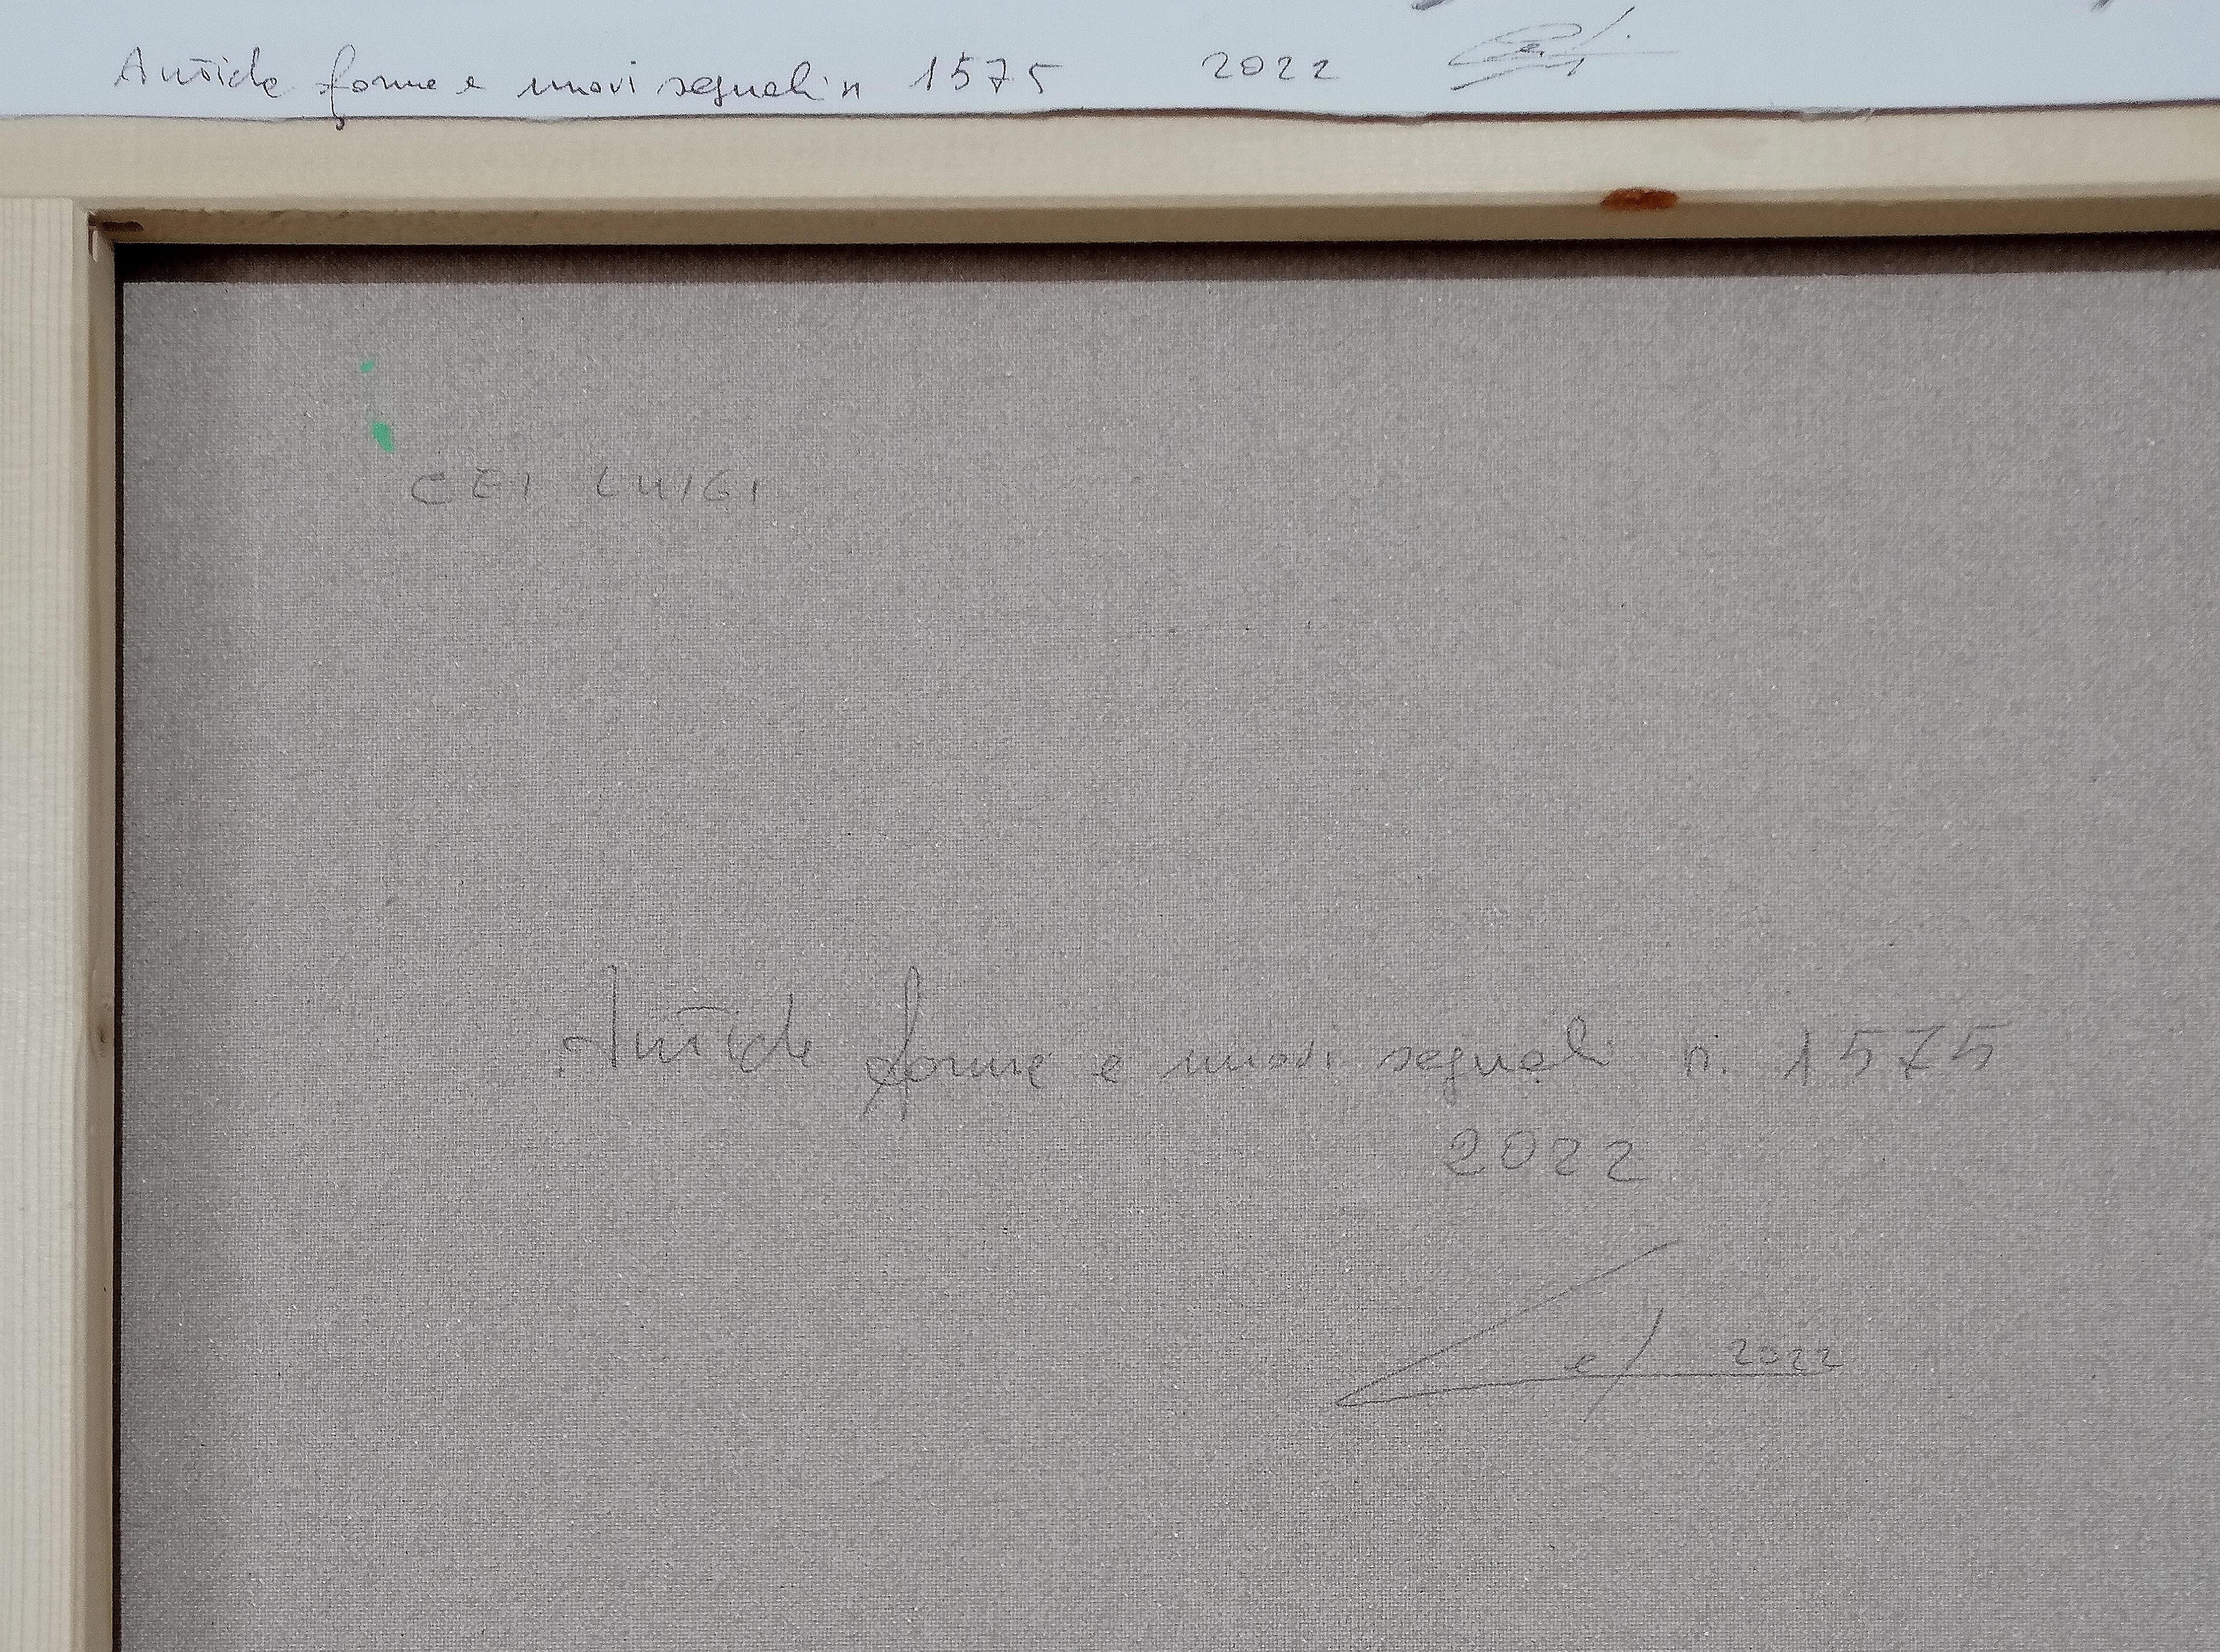 Antiche forme e nuovi segnali n 1575 2022 Cei
CEI LUIGI
Antiche forme e nuovi segnali n. 1575
2022
Cei 2022